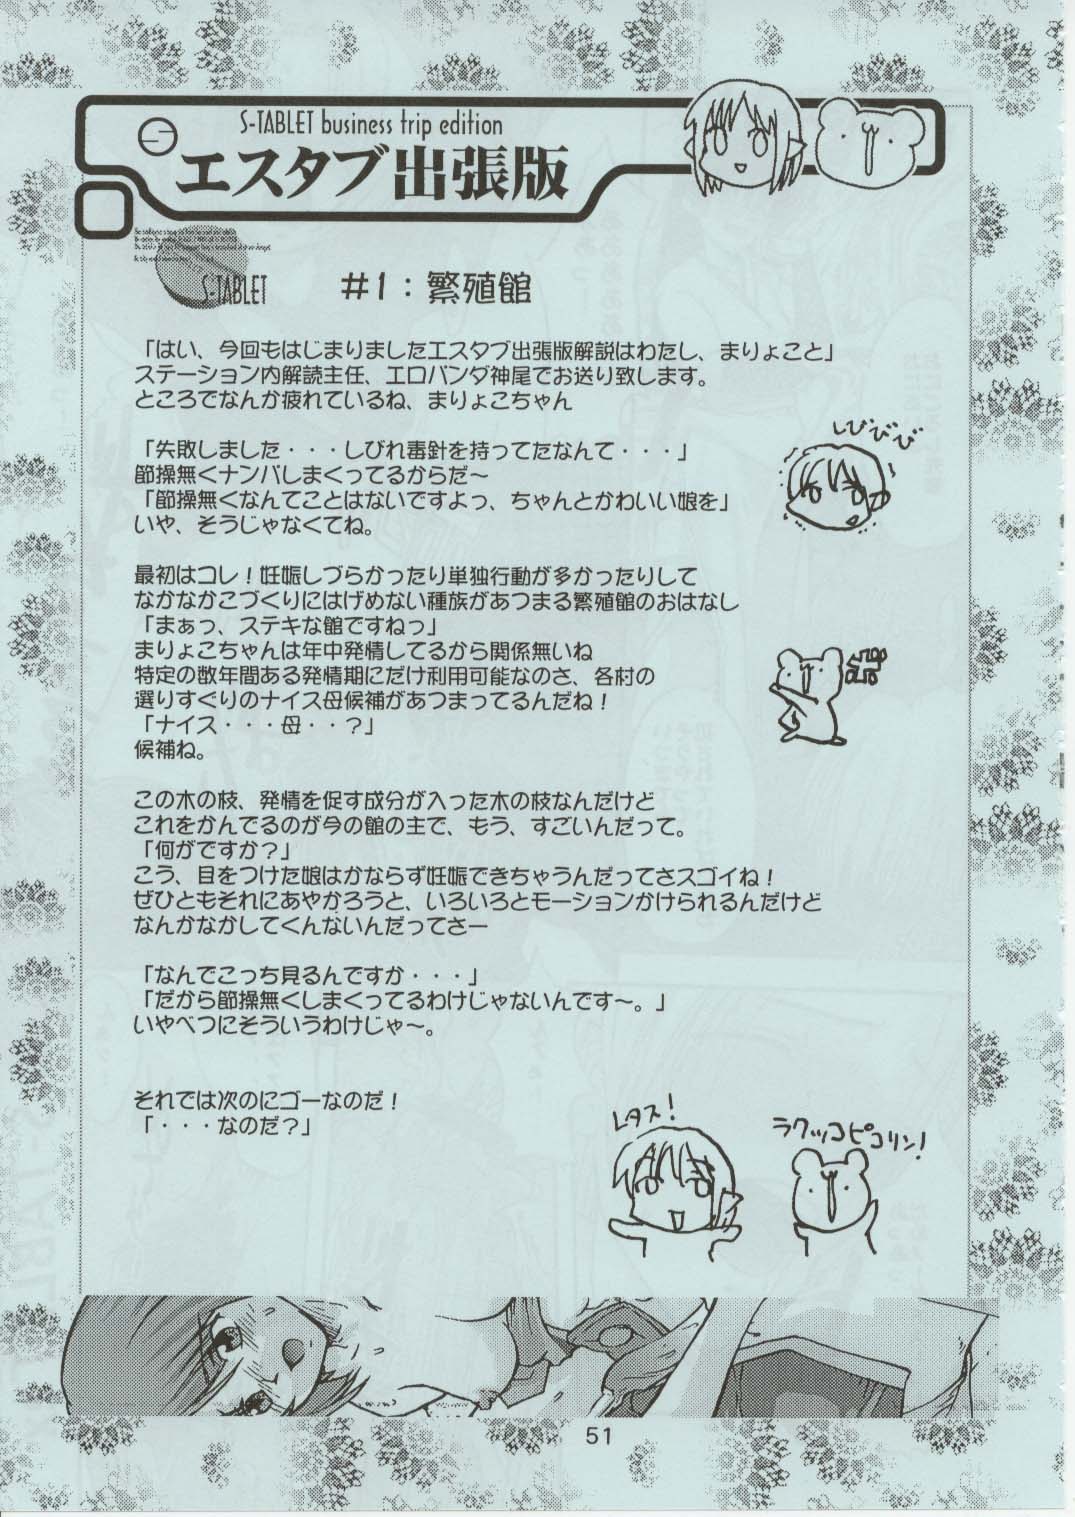 S-TABLET business trip edition
エスタブ出張版
S-TABLET
#1：繁殖館
「はい、今回もはじまりましたエスタブ出張版解説はわたし、まりょこと」
ステーション内解読主任、エロバンダ神尾でお送り致します。
ところでなんか疲れているね、まりょこちゃん
「失敗しました・・・しびれ毒針を持ってたなんて・・・」
節操無くナンパしまくってるからだ～
「節操無くなんてことはないですよっ、ちゃんとかわいい娘を」
いや、そうじゃなくてね。
しびびび
最初はコレ！妊娠しづらかったり単独行動が多かったりして
なかなかこづくりにはげめない種族があつまる繁殖館のおはなし
「まぁっ、ステキな館ですねっ」
まりょこちゃんは年中発情してるから関係無いね
特定の数年間ある発情期にだけ利用可能なのさ、各村の
選りすぐりのナイス母候補があつまってるんだね！
「ナイス・・・母・・？」
候補ね。
この木の枝、発情を促す成分が入った木の枝なんだけど
これをかんでるのが今の館の主で、もう、すごいんだって。
「何がですか？」
こう、目をつけた娘はかならず妊娠できちゃうんだってさスゴイね！
ぜひともそれにあやかろうと、いろいろとモーションかけられるんだけど
なんかなかしてくんないんだってさー
「なんでこっち見るんですか・・・」
「だから節操無くしまくってるわけじゃないんです～。」
いやべつにそういうわけじゃ～。
それでは次のにゴーなのだ！
「・・・なのだ？」
レタス！
ラクッコピコリン！
51